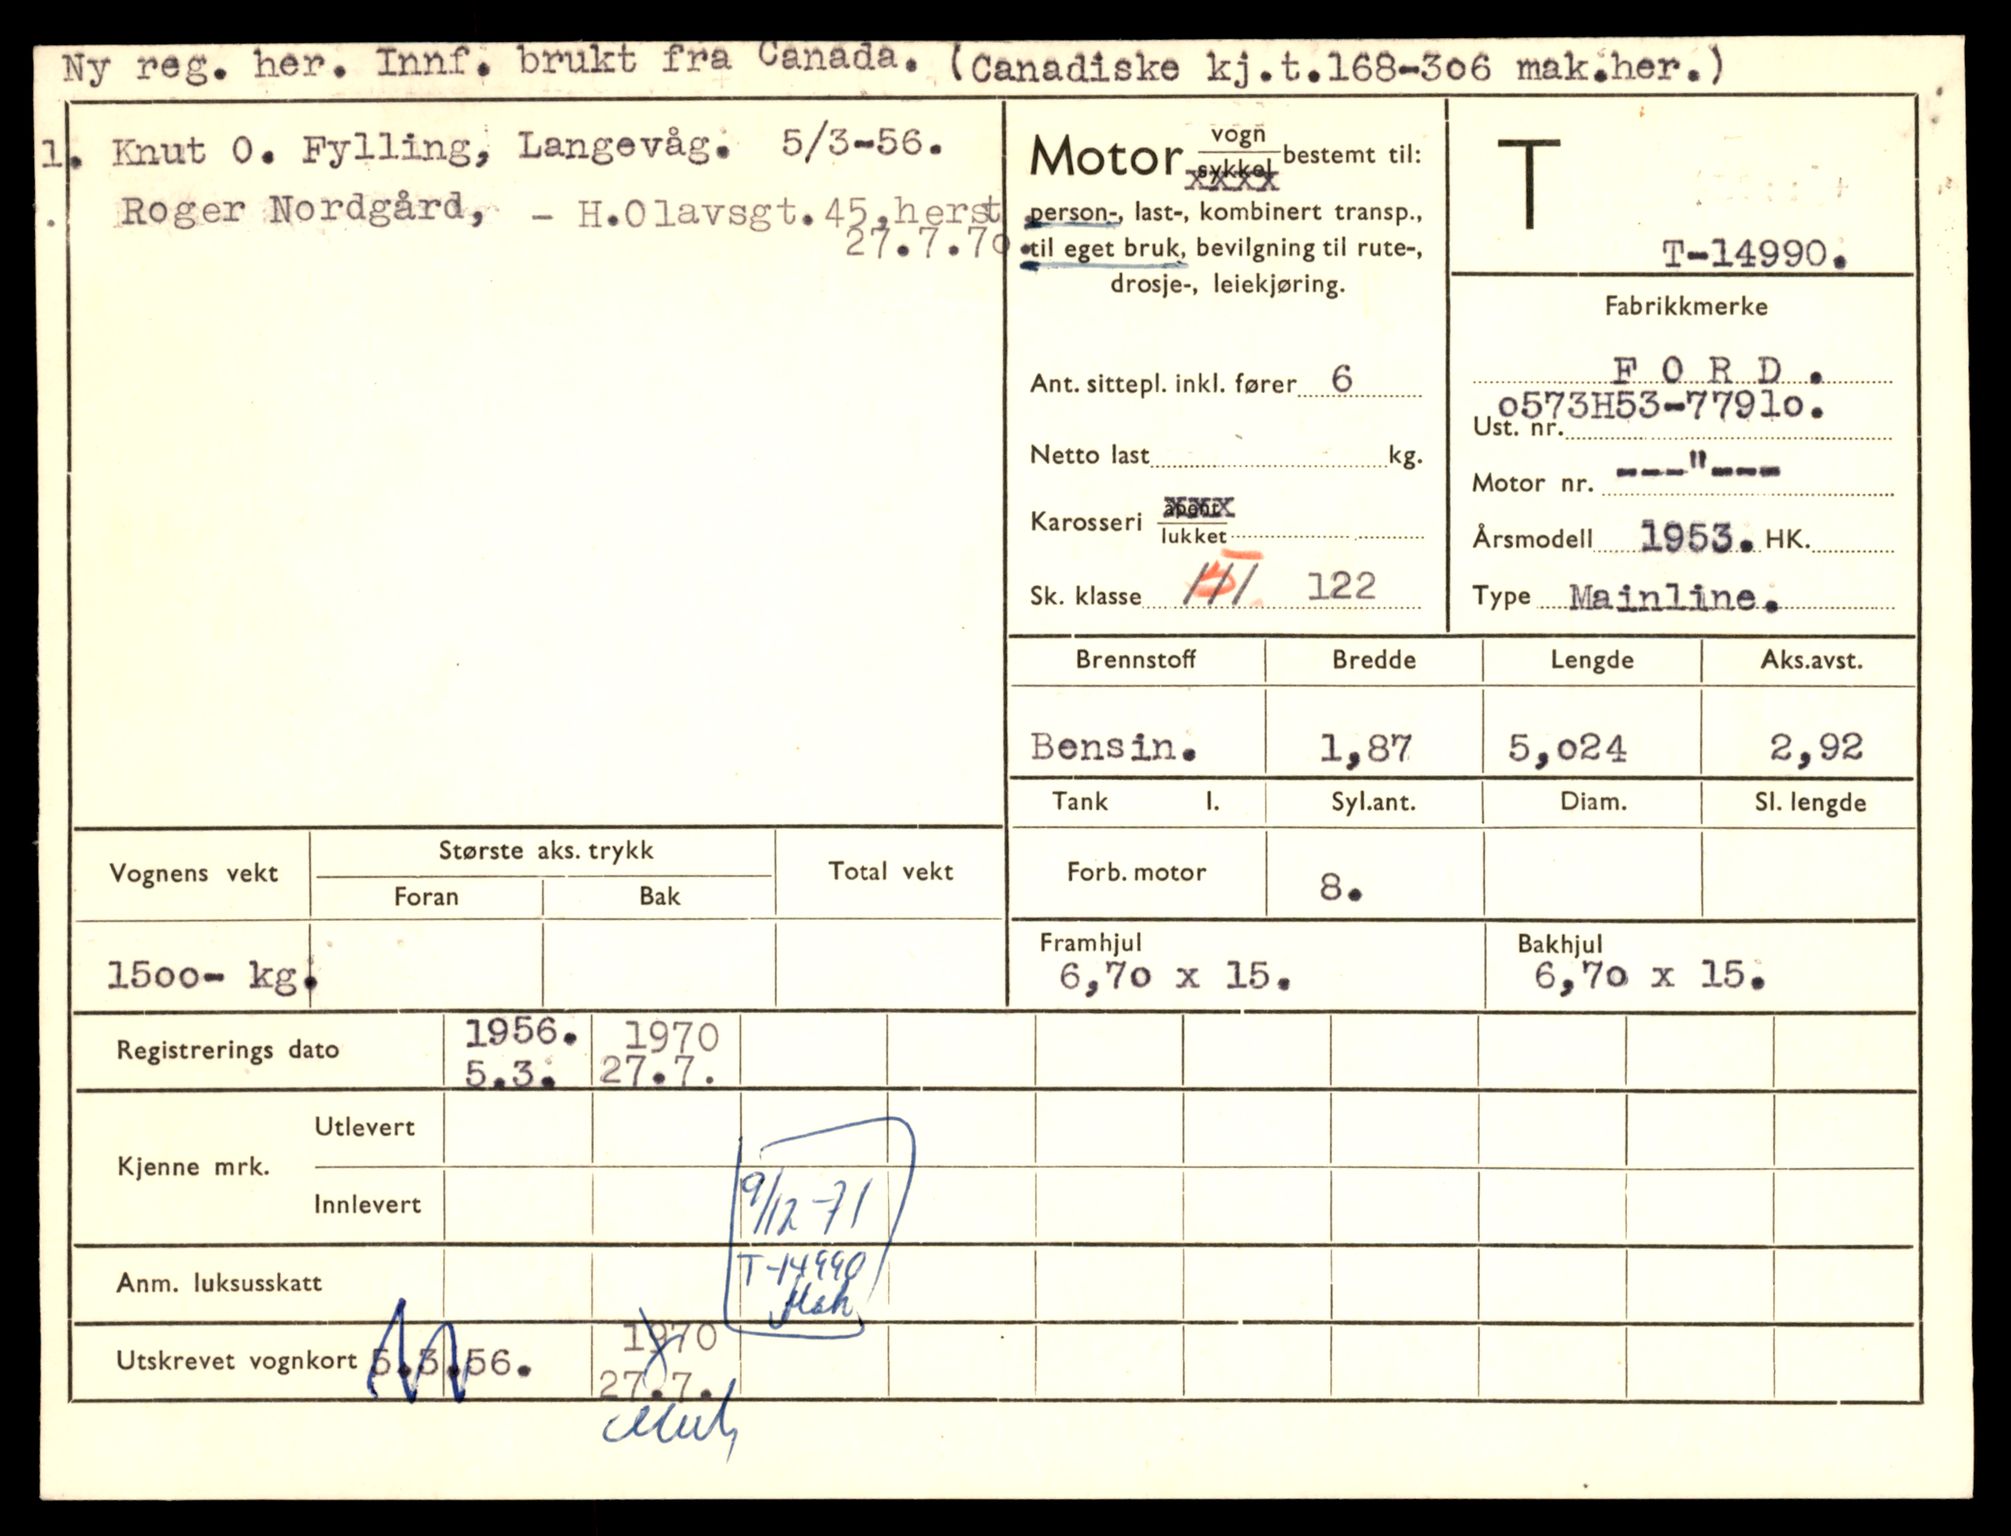 Ny reg. her. Innf. brukt fra Canada. (Canadiske kj.t.168-306 mak.her.)
1. Knut O. Fylling, Langevåg. 5/3-56.
. Roger Nordgård, - H.Olavsgt.45,herst
27.7.70.
Motor vogn bestemt til:
sykkel
xxxx
person-, last-, kombinert transp.,
til eget bruk, bevilgning til rute-,
drosje-, leiekjøring.
Ant. sittepl. inkl. fører 6
Netto last kg.
Karosseri åpent
xxx
lukket
Sk. klasse III 122
T
T-14990.
Fabrikkmerke
F O R D .
Ust. nr. o573H53-7791o.
Motor nr. ---"---
Årsmodell 1953. HK.
Type Mainline.
Brennstoff Bredde Lengde Aks.avst.
Bensin. 1,87 5,o24 2,92
Tank l. Syl.ant. Diam. Sl. lengde
Forb. motor 8.
Framhjul Bakhjul
6,7o x 15. 6,7o x 15.
Vognens vekt Største aks. trykk Total vekt
Foran Bak
15oo- kg.
Registrerings dato 1956. 1970
5.3. 27.7.
Kjenne mrk. Utlevert
Innlevert 9/12-71
T-14990
Anm. luksusskatt
Utskrevet vognkort 5.3.56. 1970
27.7.